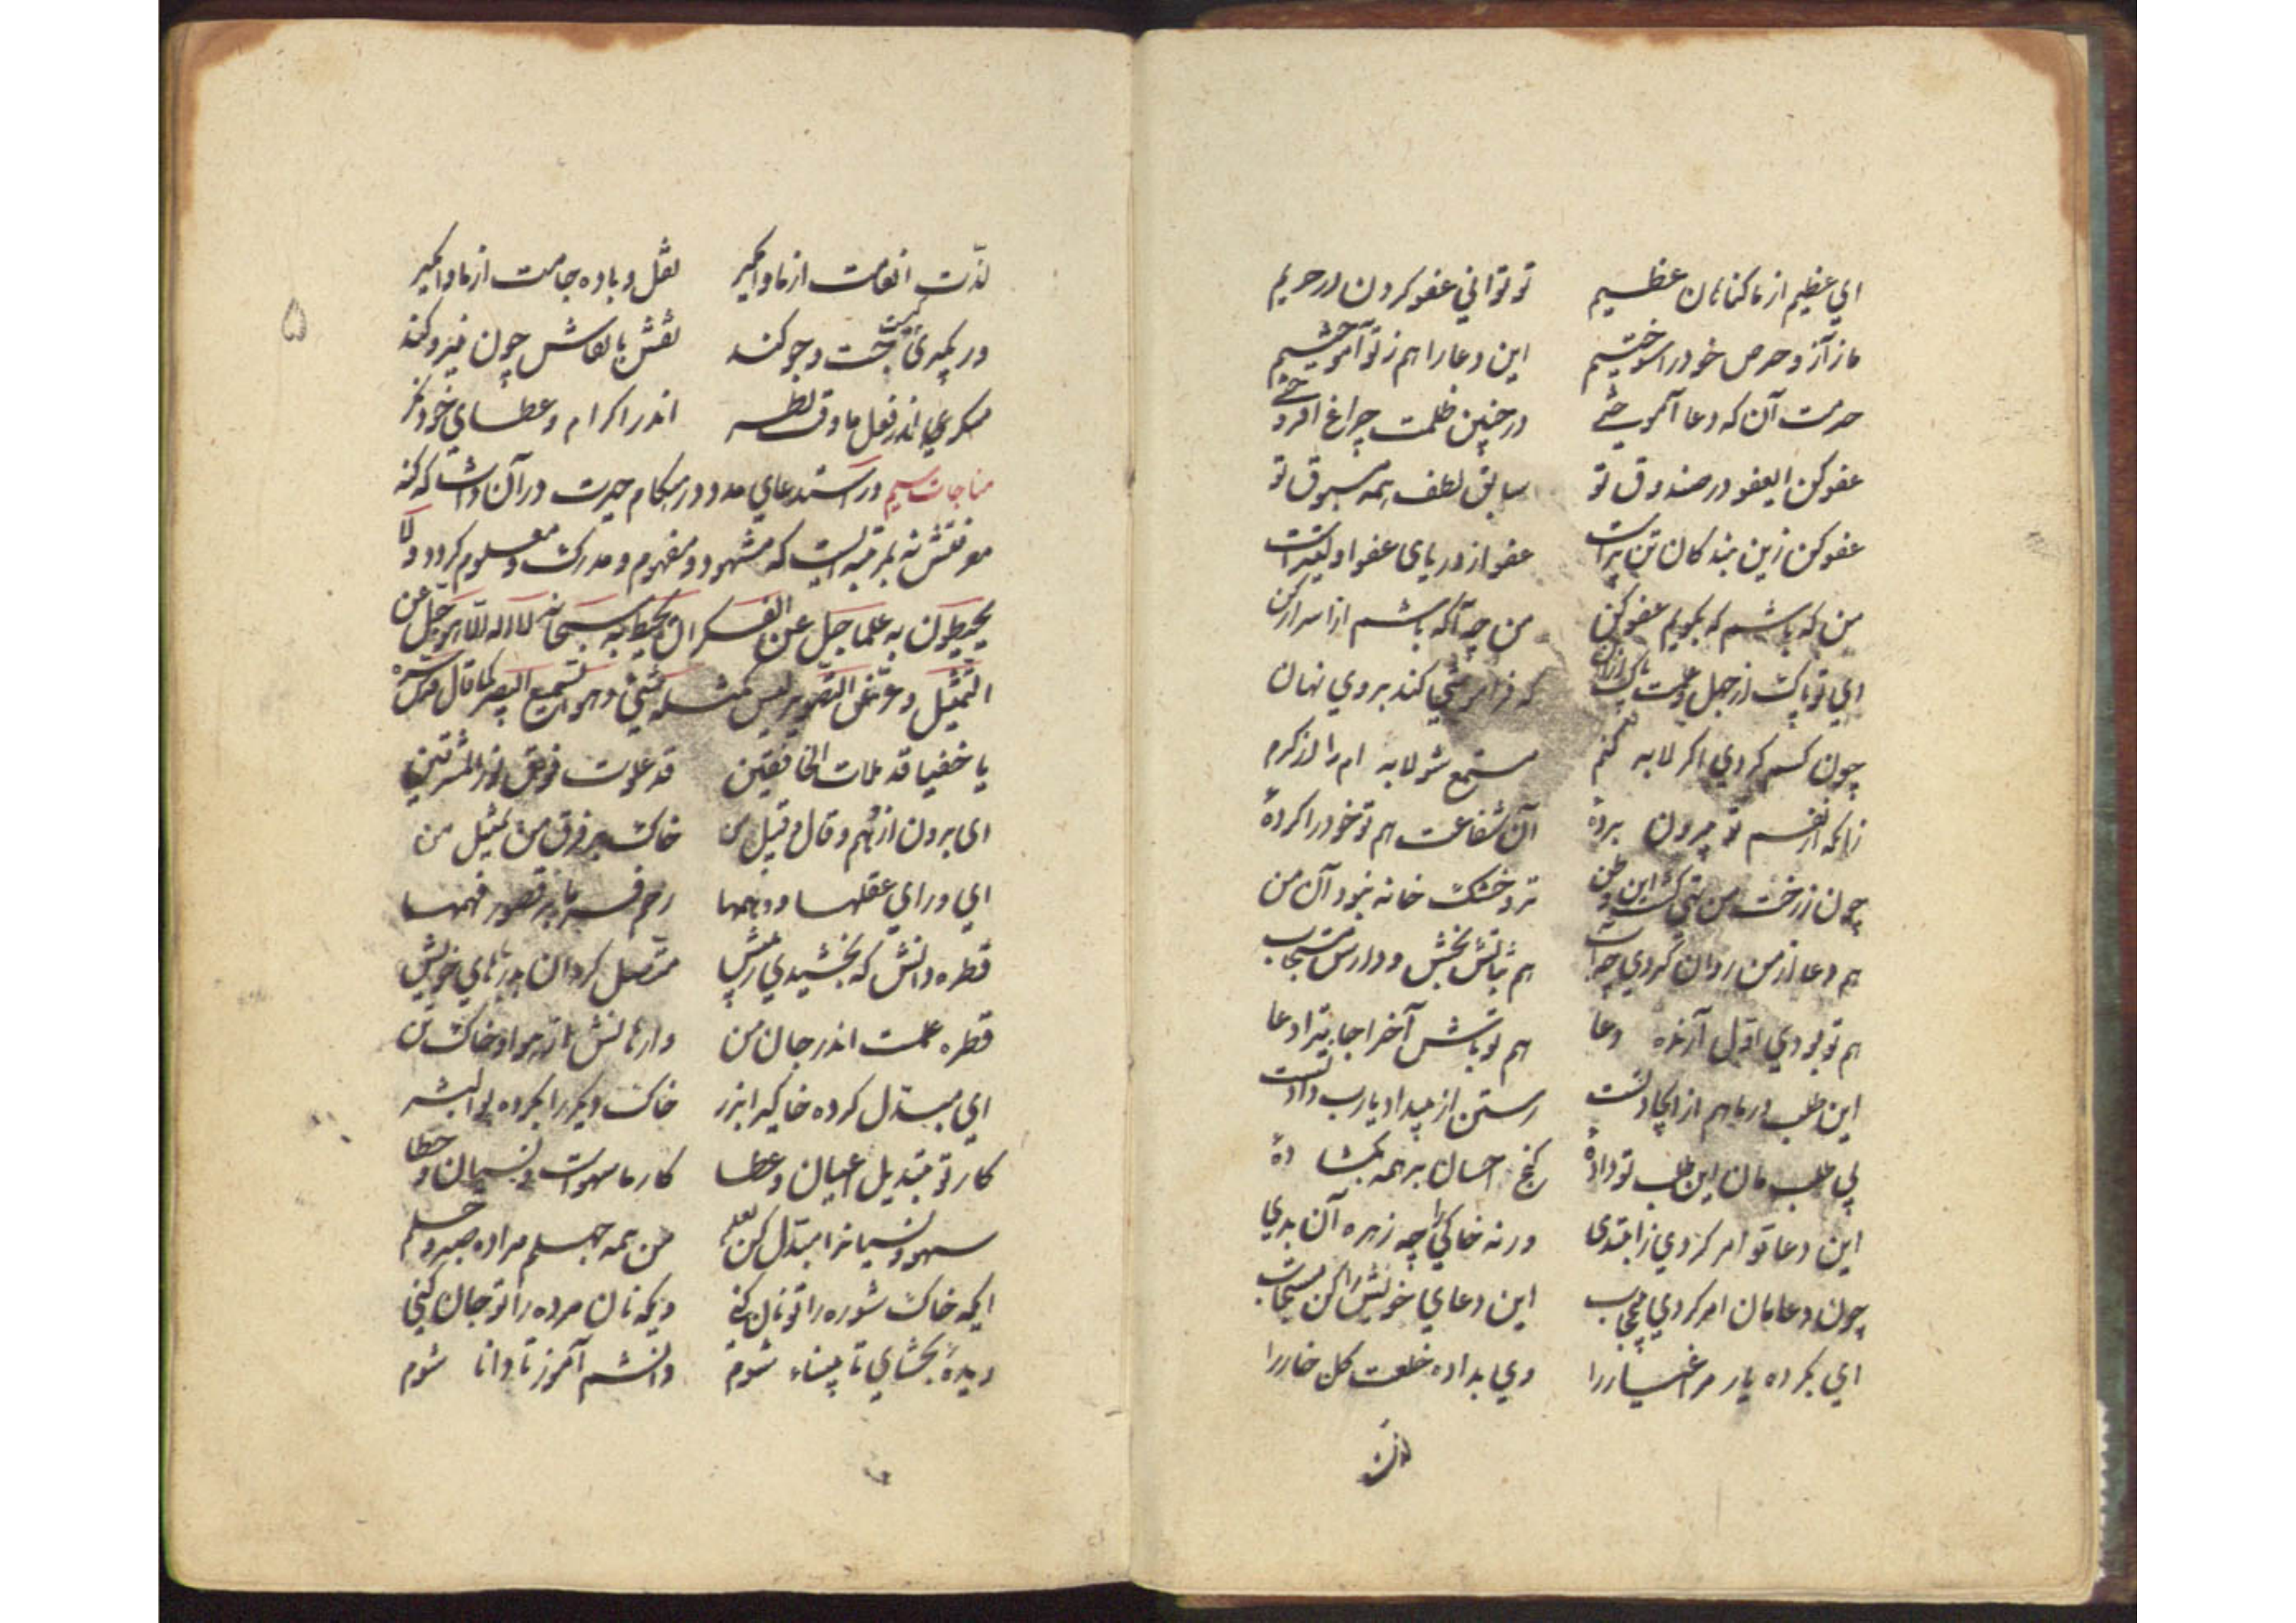 ای عظیم از ما گناهان عظیم تو توانی عفو کردن در حریم
ما ز آز و حرص خود را سوختیم این دعا را هم ز تو آموختیم
حرمت آن که دعا آموختی در چنین ظلمت چراغ افروختی
عفو کن ای عفو در صندوق تو سابق لطف همه مسبوق تو
عفو کن زین بندگان تن پرست عفو از دریای عفو اولیترست
من که باشم که بگویم عفو کن من چه آگه باشم از اسرار کن
ای تو پاک از جهل و علمت پاک از آن که فراموشی کند بر وی نهان
چون کسم کردی اگر لابه کنم مستمع شو لابه ام را از کرم
زانکه از نقشم تو بیرون برده آن شفاعت هم تو خود را کرده
چون ز رخت من تهی گشت این وطن تر و خشک خانه نبود آن من
هم دعا از من روان کردی چو آب هم ثباتش بخش و دارش مستجاب
هم تو بودی اول آرنده دعا هم تو باش آخر اجابت را دعا
این طلب در ما هم از ایجاد تست رستن از بیداد یارب داد تست
بی طلب مان این طلب تو داده گنج احسان بر همه بگشاده
این دعا تو امر کردی ز ابتدی ورنه خاکی را چه زهره آن بدی
چون دعامان امر کردی ای عجاب این دعای خویش را کن مستجاب
ای بکرده یار مر اغیار را وی بداده خلعت گل خار را
لذت
۵
لذت انعامت از ما وامگیر نقل و باده جامت از ما وامگیر
ور بگیری کیت جست و جو کند نقش با نقاش چون نیرو کند
منگر اندر فعل ما و در نظر اندر اکرام و عطای خود نگر
مناجات سیم در استدعای مدد در هنگام حیرت در آن ذات که کنه
معرفتش نه بمرتبه ایست که مشهود و مفهوم و مدرک و معلوم گردد ولا
یحیطون به علما جل عن الفکر ان یحیط به سبحانه لا اله الا هو جل عن
التمثیل و عن التصویر لیس کمثله شیئ و هو السمیع البصیر کما قال قدس سره
یا خفیا قد ملات الخافقین قد علوت فوق نور المشرقین
ای برون از وهم و قال و قیل من خاک بر فرق من و تمثیل من
ای ورای عقلها و وهمها رحم فرما بر قصور فهمها
قطره دانش که بخشیدی ز پیش متصل گردان بدریاهای خویش
قطره علمست اندر جان من وارهانش از هوا و خاک تن
ای مبدل کرده خاکی را بزر خاک دیگر را بکرده بوالبشر
کار تو تبدیل اعیان و عطا کار ما سهوست و نسیان و خطا
سهو و نسیانرا مبدل کن بعلم من همه جهلم مرا ده صبر و حلم
ایکه خاک شوره را تو نان کنی ویکه نان مرده را تو جان کنی
دیده بخشای تا بیناء شوم دانشم آموز تا دانا شوم